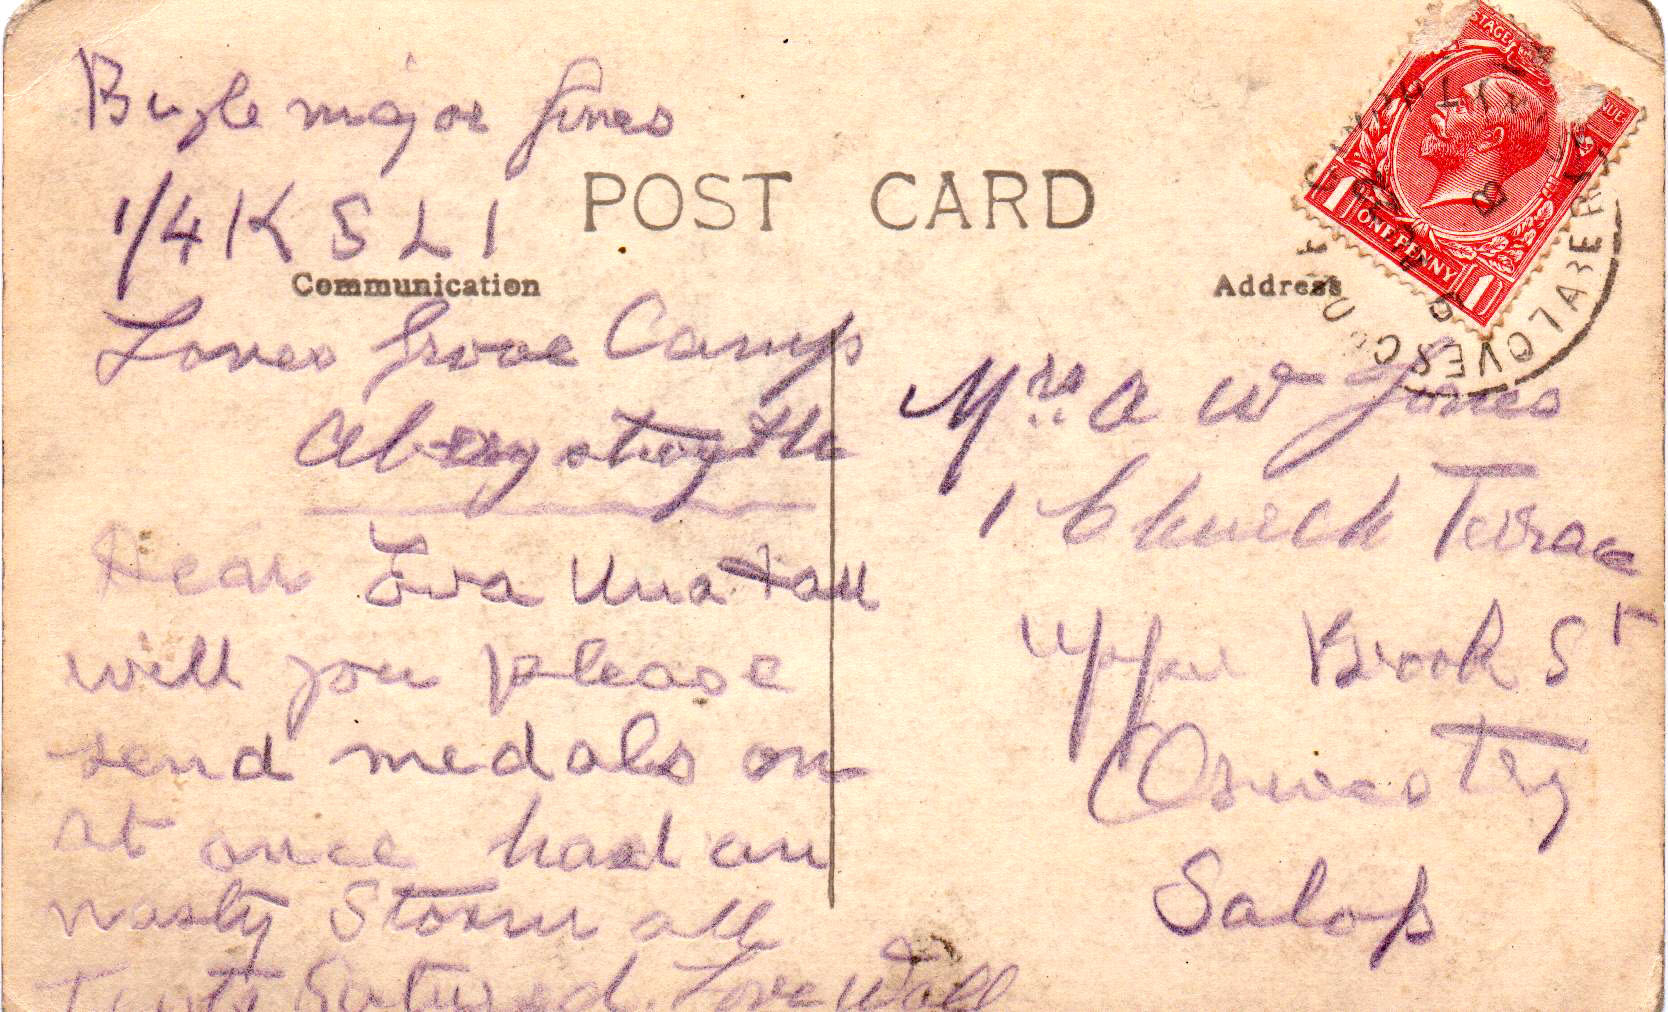 Bugle major Jones
1/4 K S L I
Communication
Loves Grove Camp
Aberystwyth
Dear Eva Una + all
will you please
send medals on
at once had an
nasty Storm all
Tents Love Wall
POST CARD
Address
Mrs A W Jones
1 Church Terrace
Upper Brook St
Oswestry
Salop
POSTAGE
1 ONE PENNY 1
LOVESGROVE CAMP
ABERYSTWYTH